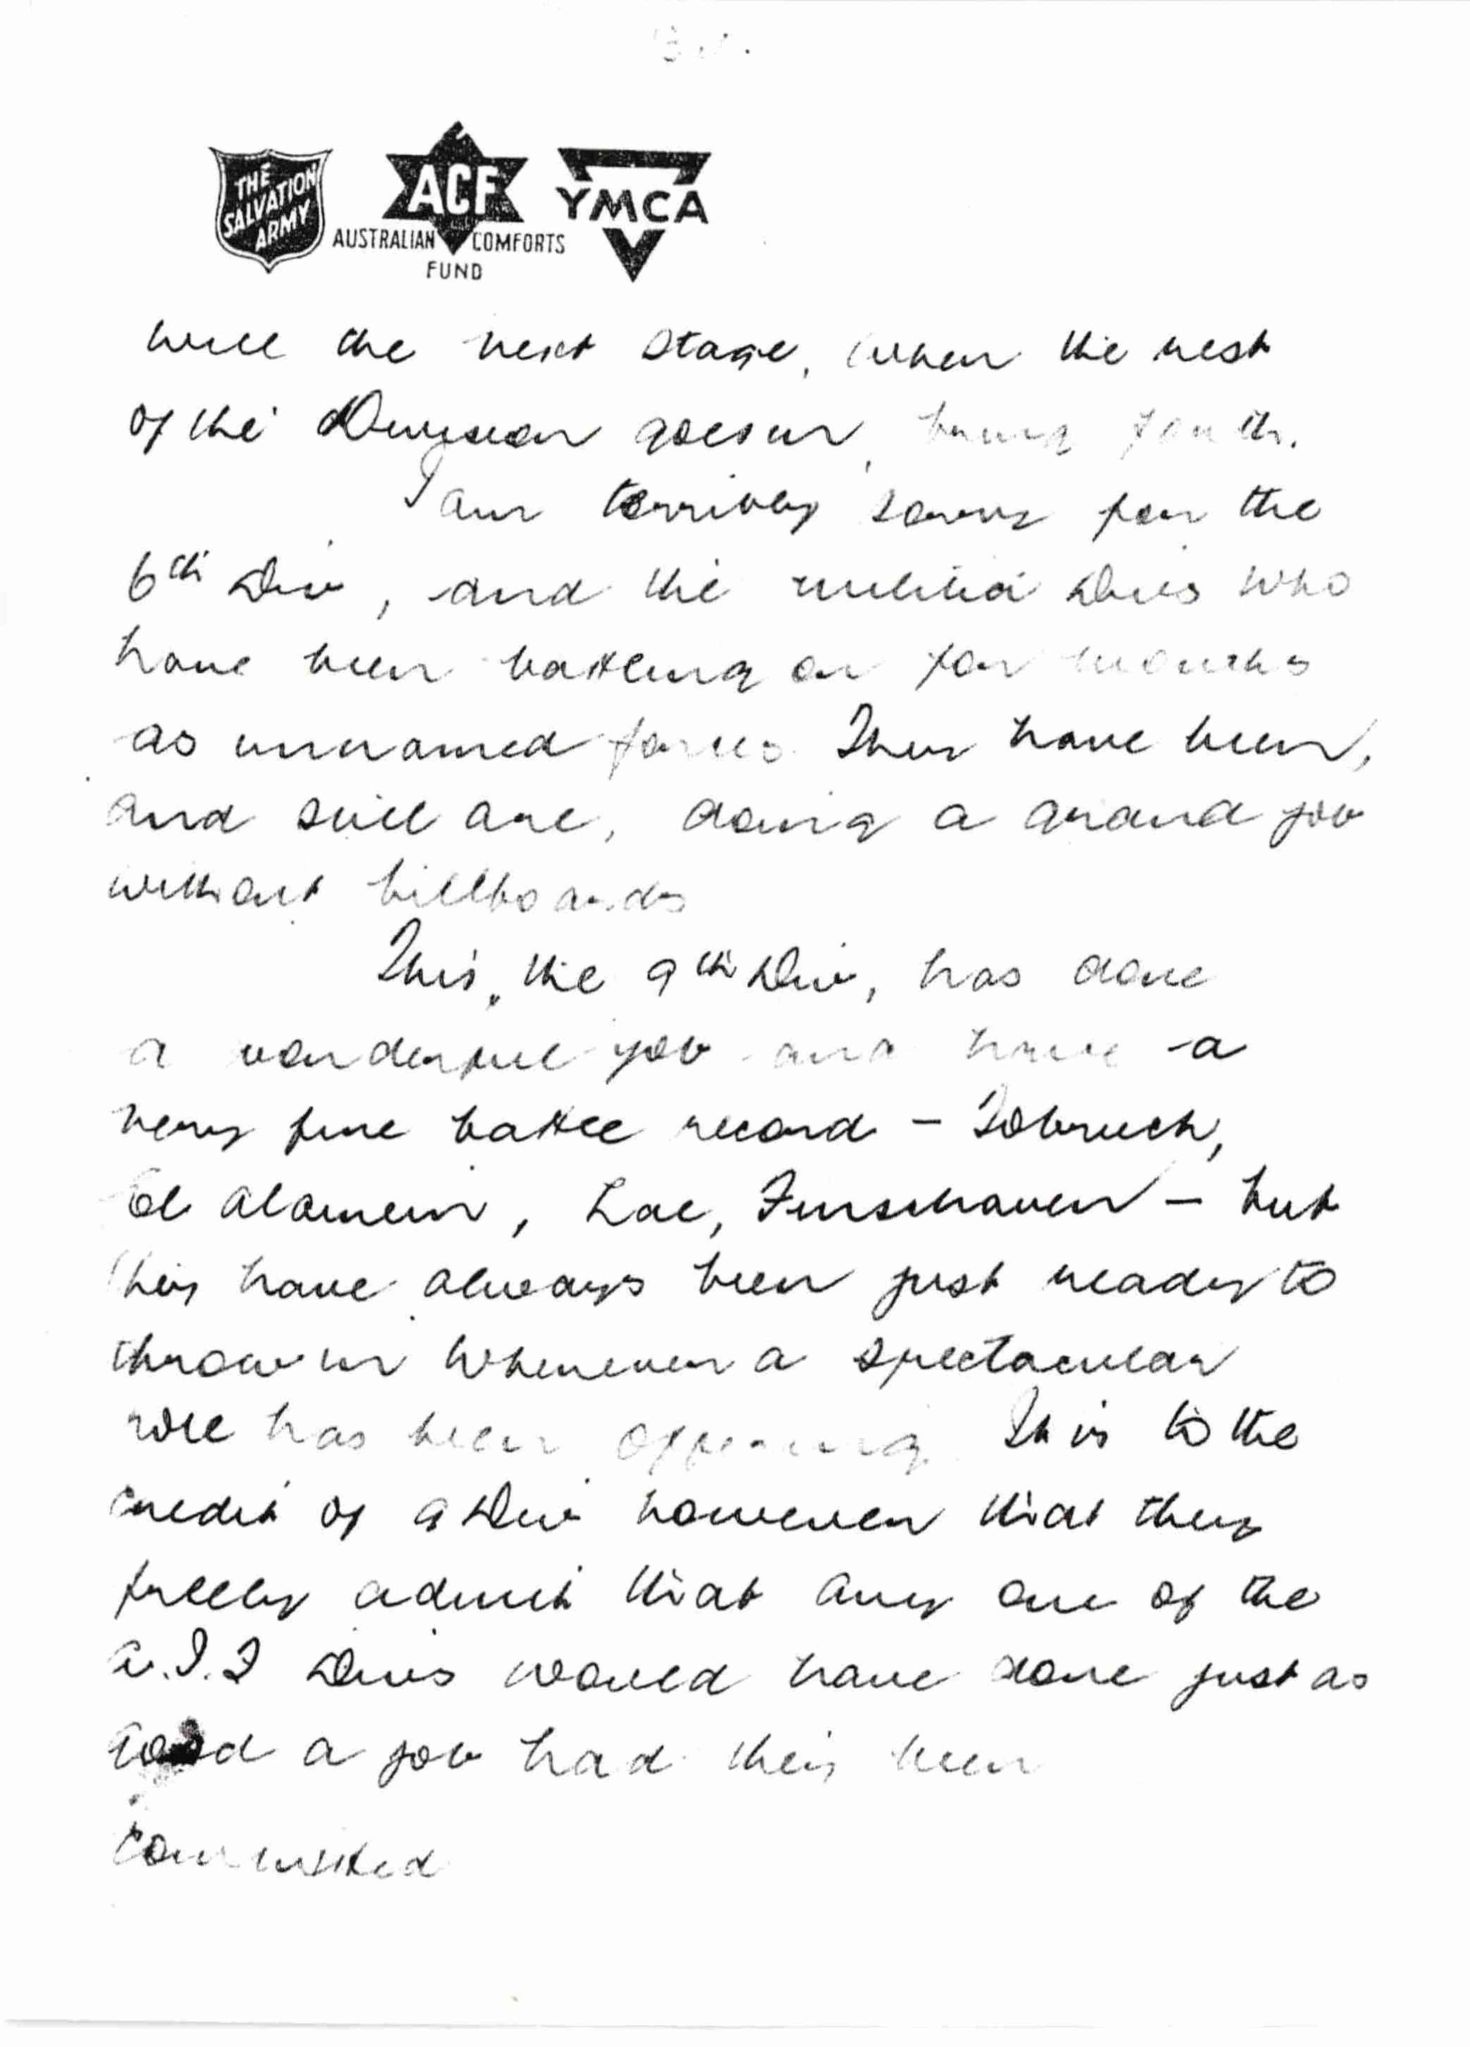 THE
SALVATION
ARMY
ACF
AUSTRALIAN COMFORTS
FUND
YMCA
will the next stage, when the rest
of the Division goes in, bring forth.
I am terribly sorry for the
6th Div, and the militia Divs who
have been battling on for months
as unnamed forces. They have been,
and still are, doing a grand job
without billboards
This, the 9th Div, has done
a wonderful job and have a
very fine battle record - Tobruch,
El Alamein, Lae, Finschaven - but
they have always been just ready to
throw in whenever a spectacular
role has been offering. It is to the
credit of 9 Div however that they
freely admit that any one of the
A.I.F Divs would have done just as
good a job had they been
committed